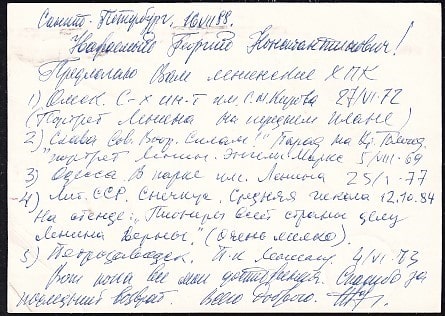 Санкт-Петербург. 16.VII 99.
Уважаемый Кирилл Константинович!
Предлагаю Вам ленинские ХПК
1) Омск. С-х ин-т им. С.М.Кирова 27/VI-72
(Портрет Ленина на переднем плане)
2) "Слава Сов. Воор. Силам!" Парад на Кр. Площ.
"портрет Ленин. Энгельс. Маркс 5/VIII-69
3) Одесса В парке им. Ленина 25/I-77
4) Лит. ССР. Снечкус. Средняя школа 12.10.84
На стенде: "Пионеры всей страны делу
Ленина верны." (Очень мелко).
5) Петрозаводск. П-к Ленину. 4/VI-73
Вот пока все мои Спасибо за
последний возврат. Всего доброго.